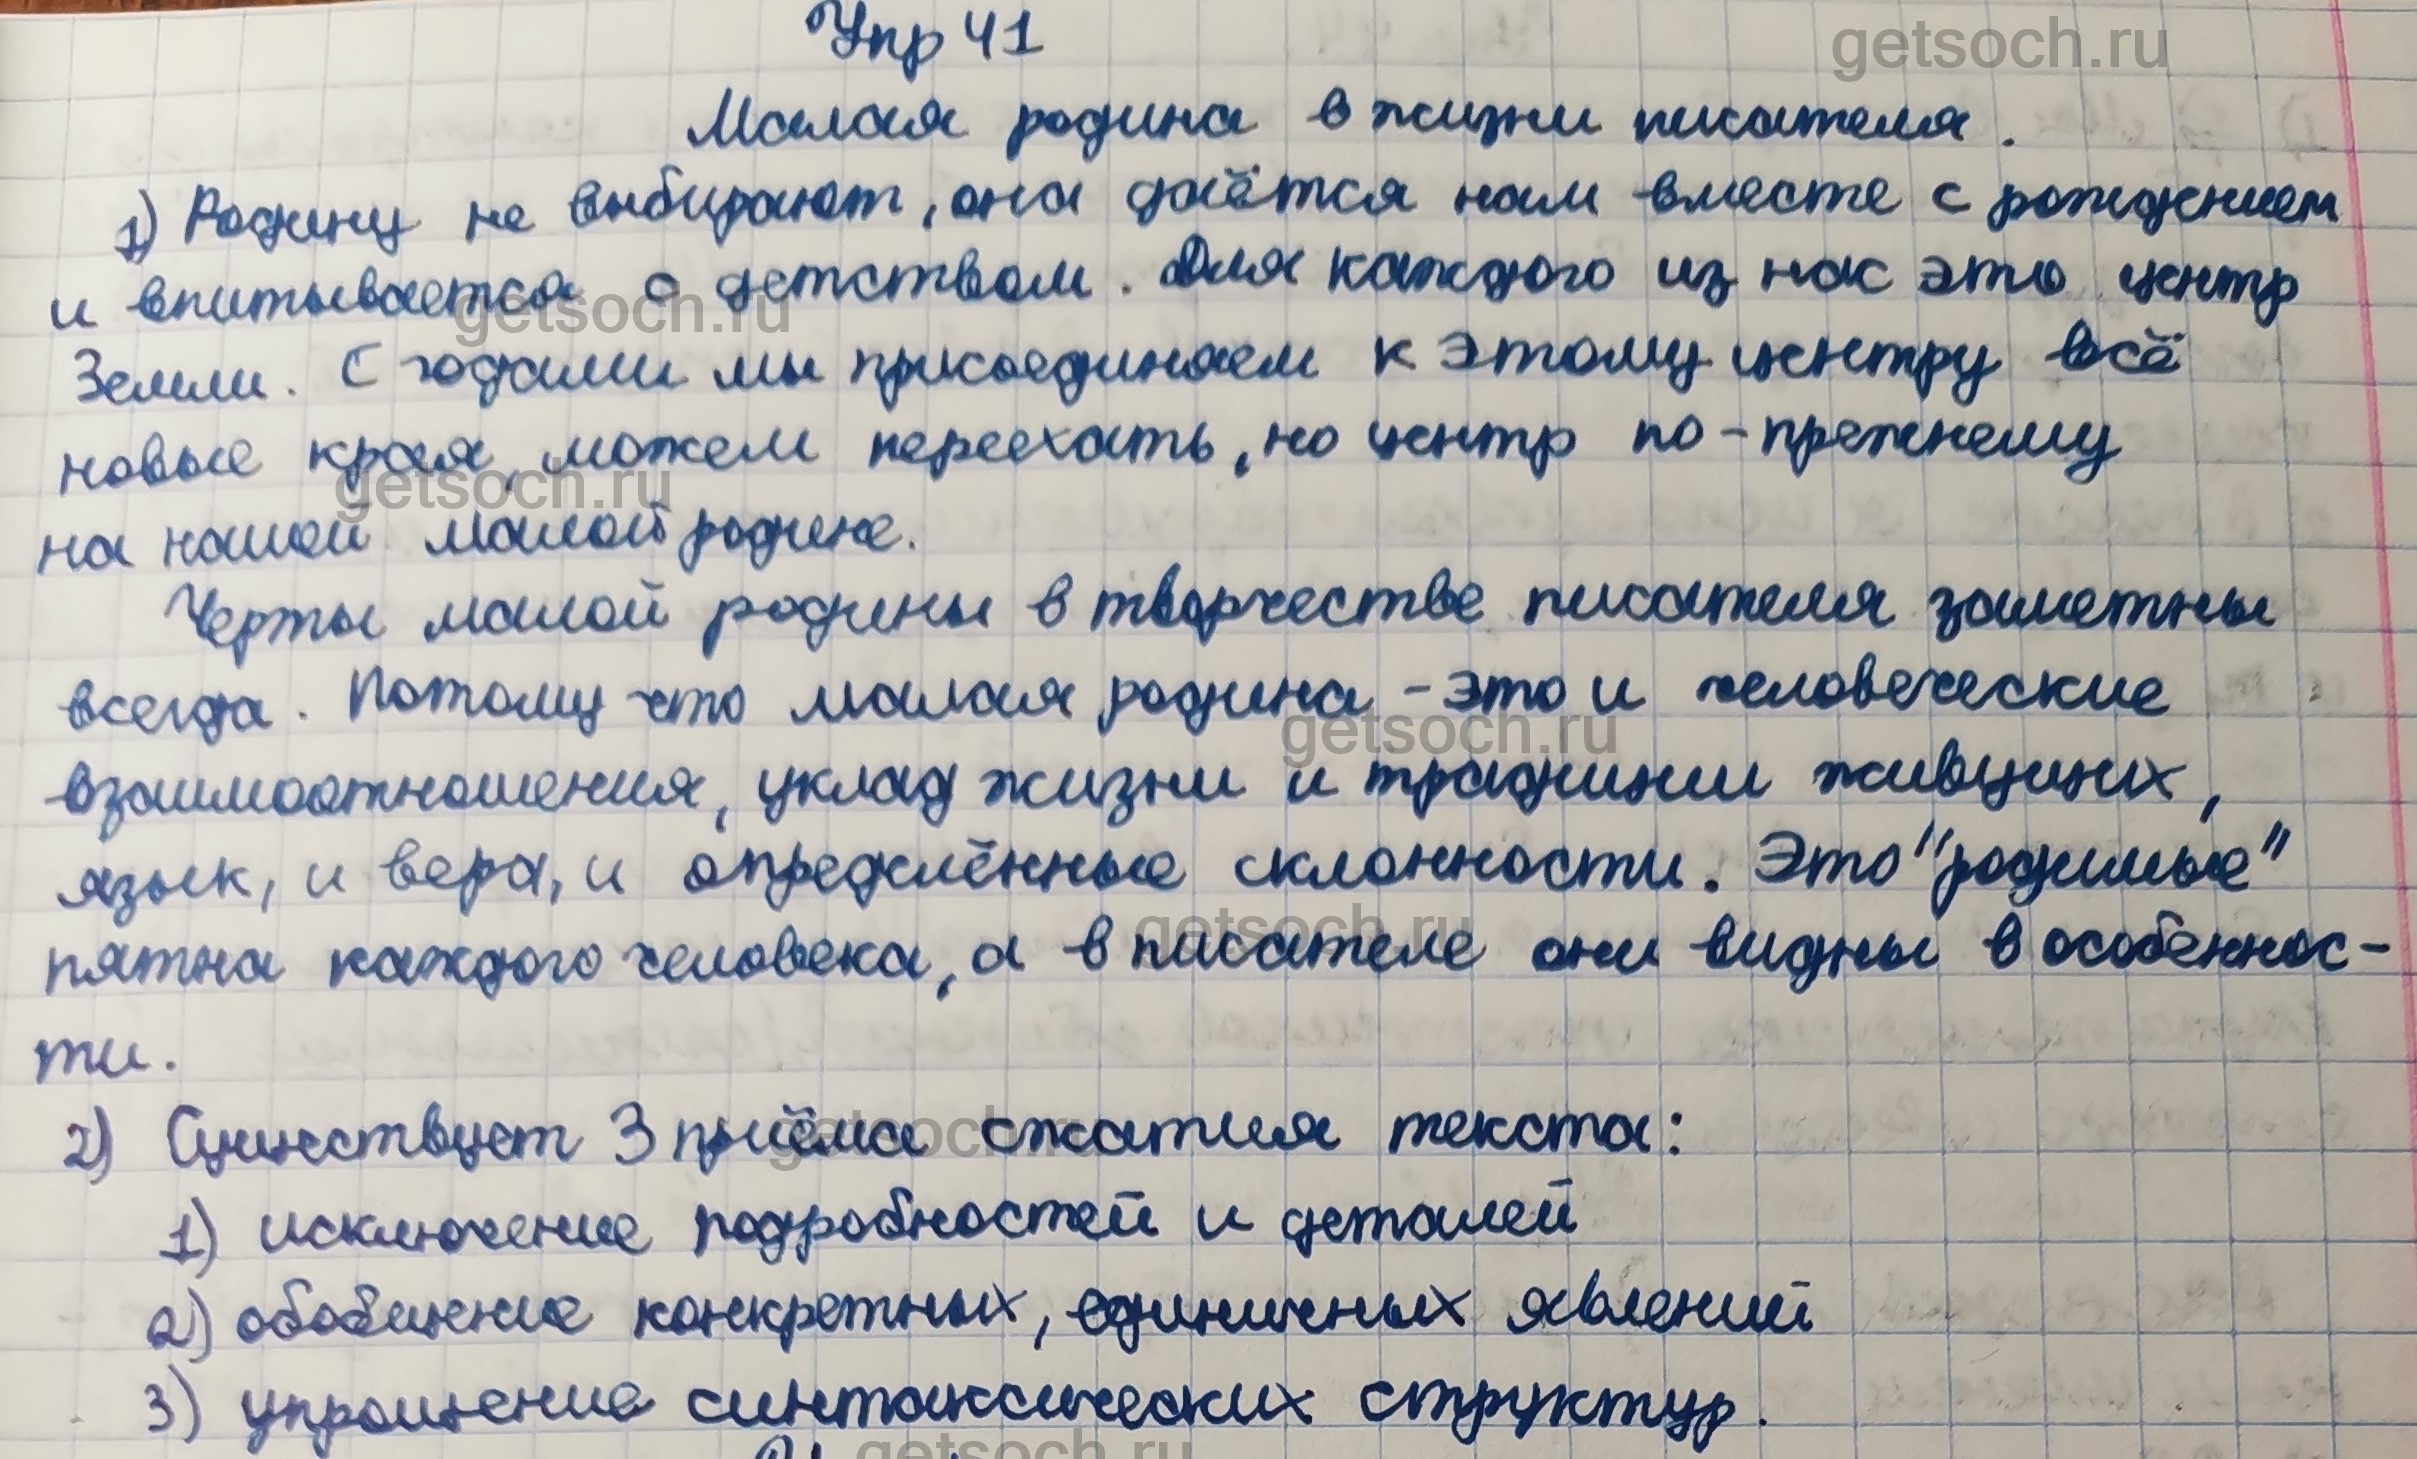 Упр 41
getsoch.ru
Малая родина в жизни писателя.
1) Родину не выбирают, она даётся нам вместе с рождением
и впитывается с детством. Для каждого из нас это центр
getsoch.ru
Земли. С годами мы присоединяем к этому центру всё
новые края, можем переехать, но центр по-прежнему
getsoch.ru
на нашей малой родине.
Черты малой родины в творчестве писателя заметны
всегда. Потому что малая родина - это и человеческие
getsoch.ru
взаимоотношения, уклад жизни и традиции живущих,
язык, и вера, и определённые склонности. Это "родимые"
getsoch.ru
пятна каждого человека, а в писателе они видны в особеннос-
ти.
2) Существует 3 приёма сжатия текста:
getsoch.ru
1) исключение подробностей и деталей
2) обобщение конкретных, единичных явлений
3) упрощение синтаксических структур.
getsoch.ru